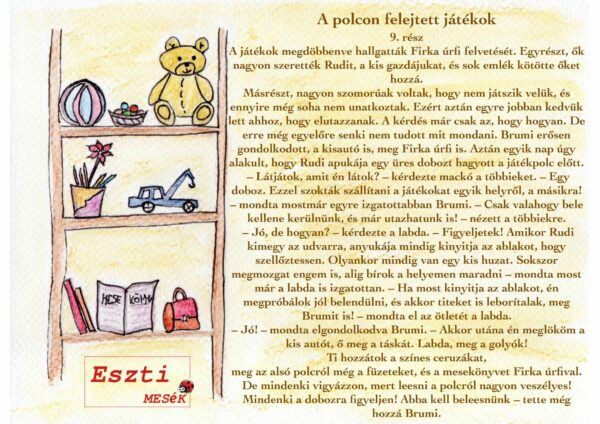 A polcon felejtett játékok
9. rész
A játékok megdöbbenve hallgatták Firka úrfi felvetését. Egyrészt, ők
nagyon szerették Rudit, a kis gazdájukat, és sok emlék kötötte őket
hozzá.
Másrészt, nagyon szomorúak voltak, hogy nem játszik velük, és
ennyire még soha nem unatkoztak. Ezért aztán egyre jobban kedvük
lett ahhoz, hogy elutazzanak. A kérdés már csak az, hogy hogyan. De
erre még egyelőre senki nem tudott mit mondani. Brumi erősen
gondolkodott, a kisautó is, meg Firka úrfi is. Aztán egyik nap úgy
alakult, hogy Rudi apukája egy üres dobozt hagyott a játékpolc előtt.
– Látjátok, amit én látok? – kérdezte mackó a többieket. – Egy
doboz. Ezzel szokták szállítani a játékokat egyik helyről, a másikra!
– mondta mostmár egyre izgatottabban Brumi. – Csak valahogy bele
kellene kerülnünk, és már utazhatunk is! – nézett a többiekre.
– Jó, de hogyan? – kérdezte a labda. – Figyeljetek! Amikor Rudi
kimegy az udvarra, anyukája mindig kinyitja az ablakot, hogy
szellőztessen. Olyankor mindig van egy kis huzat. Sokszor
megmozgat engem is, alig bírok a helyemen maradni – mondta most
már a labda is izgatottan. – Ha most kinyitja az ablakot, én
megpróbálok jól belendülni, és akkor titeket is leborítalak, meg
Brumit is! – mondta el az ötletét a labda.
– Jó! – mondta elgondolkodva Brumi. – Akkor utána én meglököm a
kis autót, ő meg a táskát. Labda, meg a golyók!
Ti hozzátok a színes ceruzákat,
meg az alsó polcról még a füzeteket, és a mesekönyvet Firka úrfival.
De mindenki vigyázzon, mert leesni a polcról nagyon veszélyes!
Mindenki a dobozra figyeljen! Abba kell beleesnünk – tette még
hozzá Brumi.
MESE KÖNYV
Eszti
MESéK